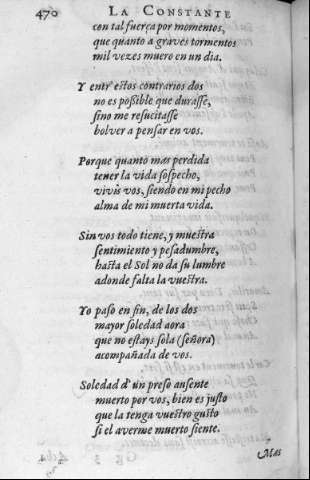 470 LA CONSTANTE
con tal fuerça por momentos,
que quanto a graves tormentos
mil vezes muero en un dia.
Y entr' estos contrarios dos
no es possible que durasse,
sino me resucitasse
bolver a pensar en vos.
Porque quanto mas perdida
tener la vida sospecho,
vivis vos, siendo en mi pecho
alma de mi muerta vida.
Sin vos todo tiene, y muestra
sentimiento y pesadumbre,
hasta el Sol no da su lumbre
adonde falta la vuestra.
Yo paso en fin, de los dos
mayor soledad aora
que no estays sola (señora)
acompañada de vos.
Soledad d' un preso ausente
muerto por vos, bien es justo
que la tenga vuestro gusto
si el averme muerto siente.
Mas